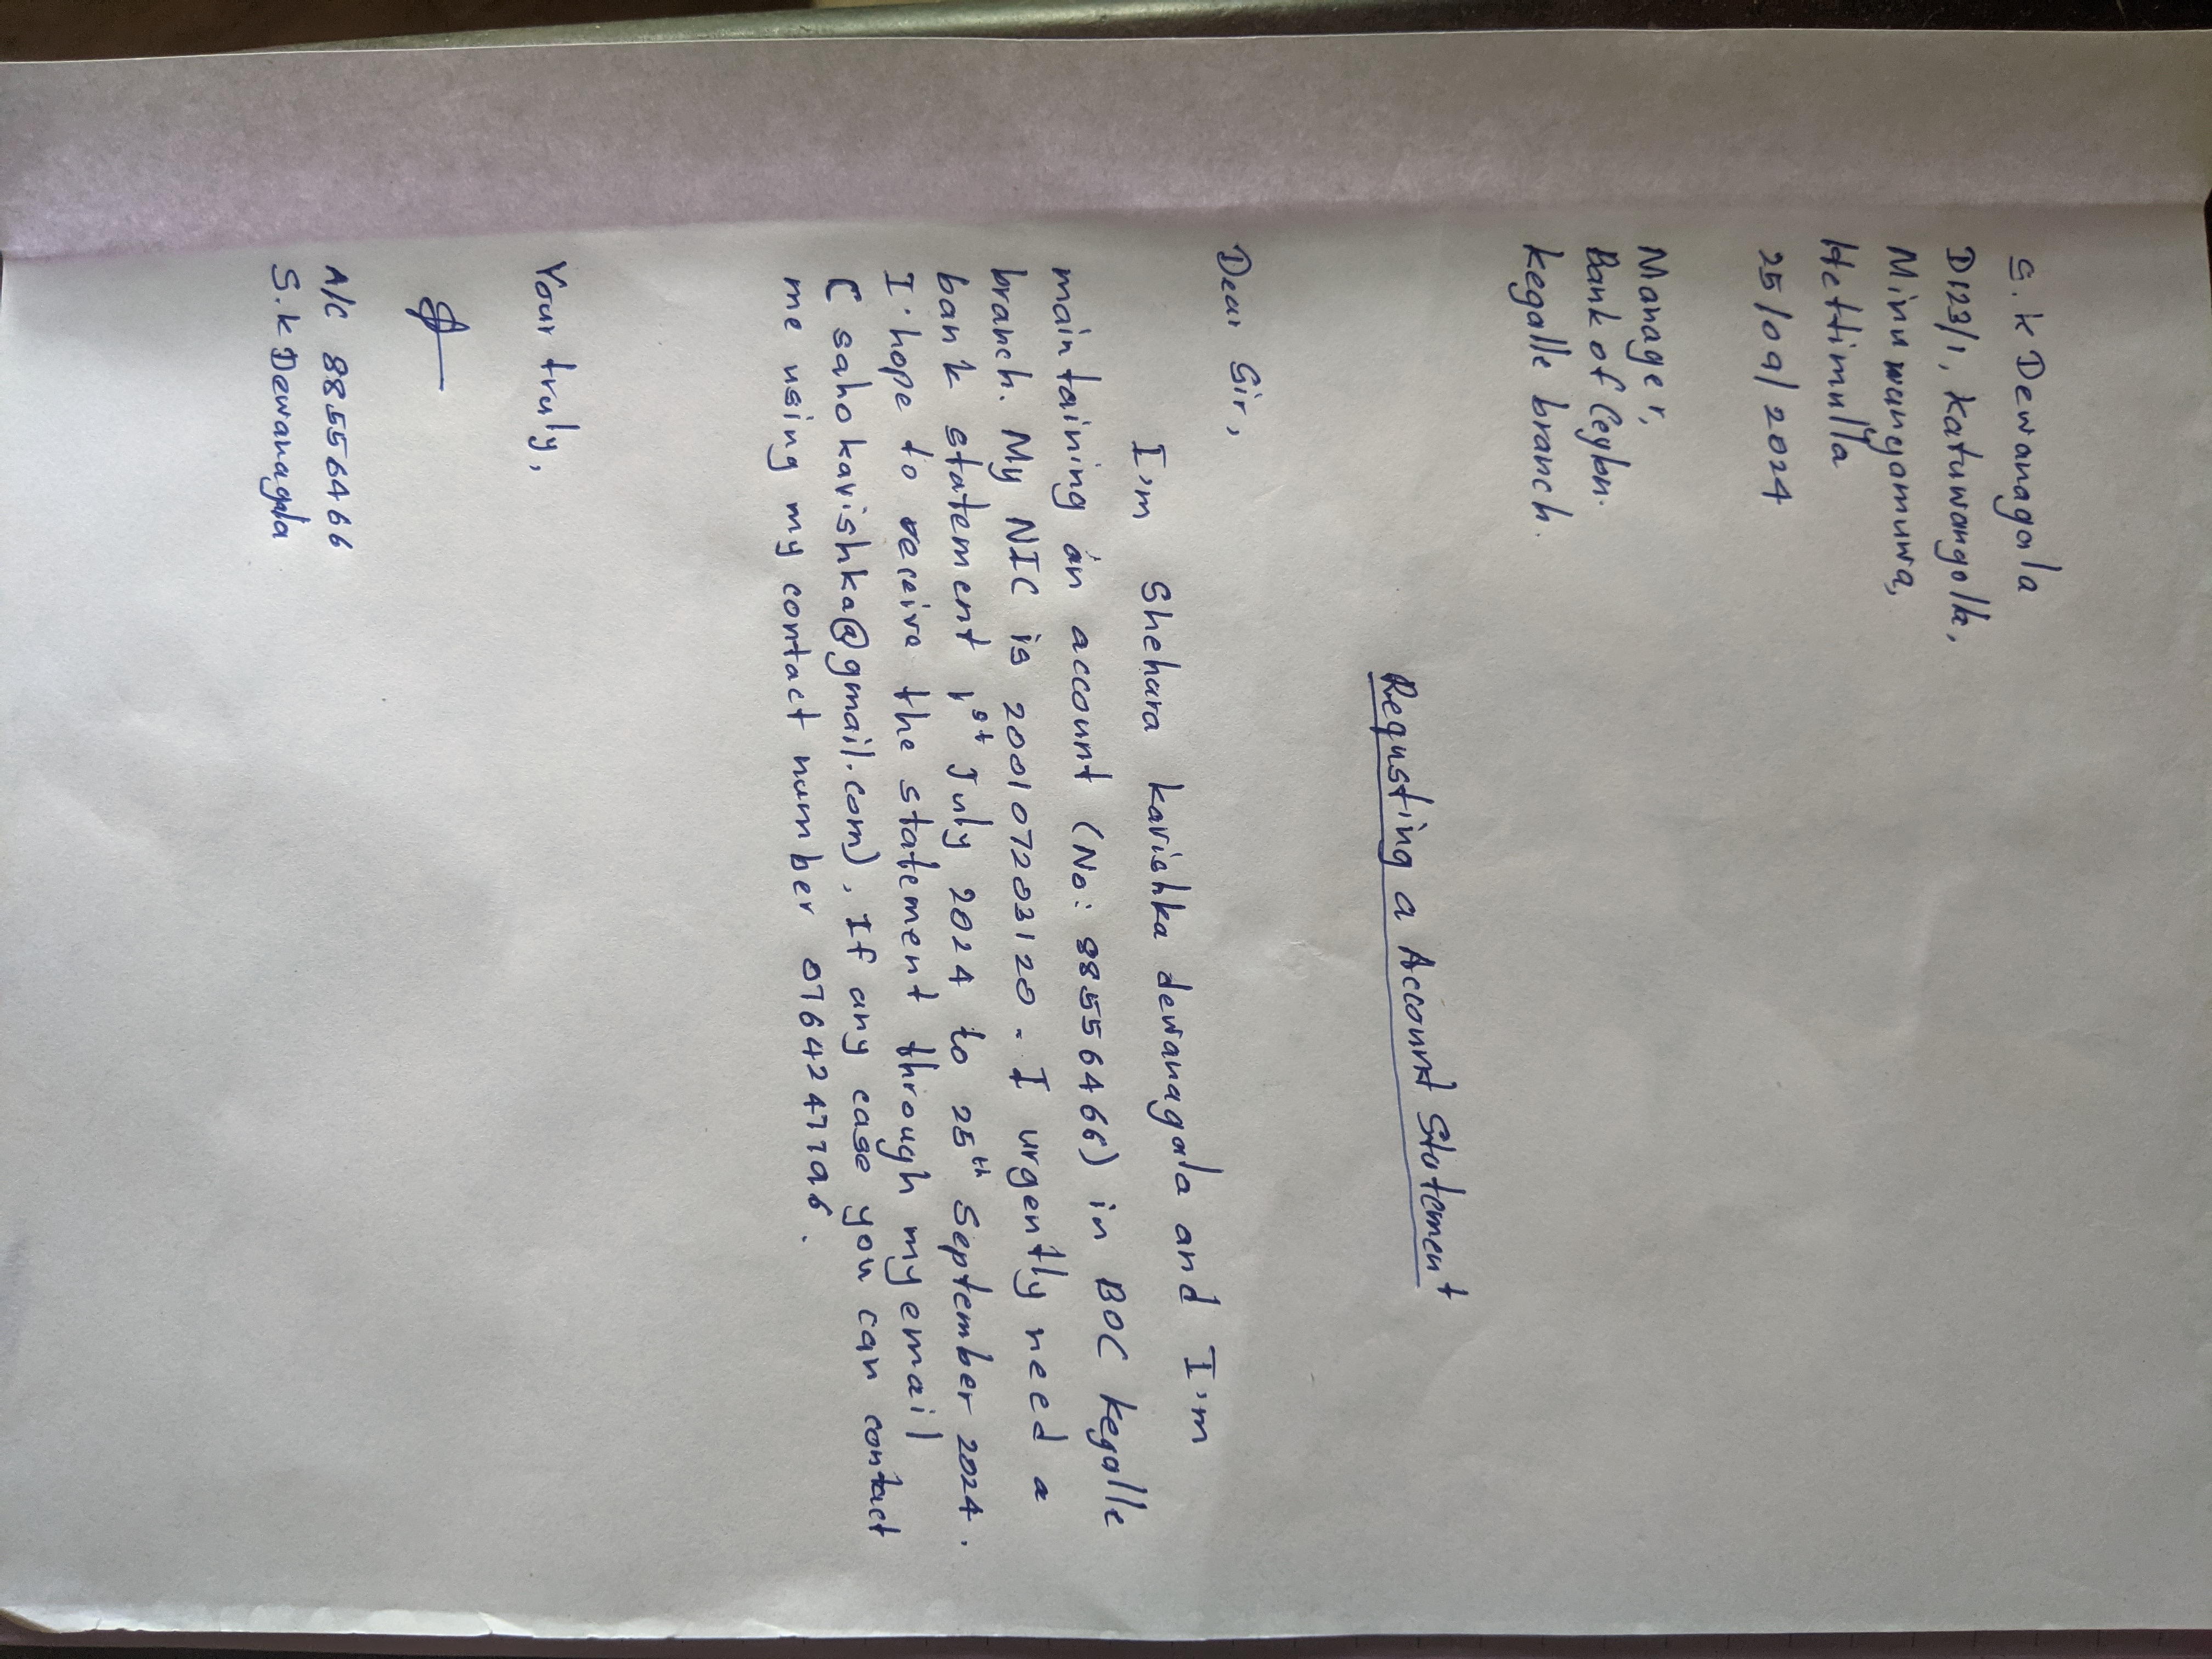 S.K Dewanagala
D123/1, Katuwangolla,
Minuwangamuwa,
Hettimulla
25/09/2024
Manager,
Bank of Ceylon.
Kegalle branch.
Requsting a Account Statement
Dear Sir,
I'm Shehara Kavishka dewanagala and I'm
maintaining an account (No: 88556466) in BOC Kegalle
branch. My NIC is 200107203120. I urgently need a
bank statement 1st July 2024 to 25th September 2024.
I hope to receive the statement through my email
(sahokavishka@gmail.com). If any case you can contact
me using my contact number 0764247796.
Your truly,
A/C 88556466
S.K Dewanagala